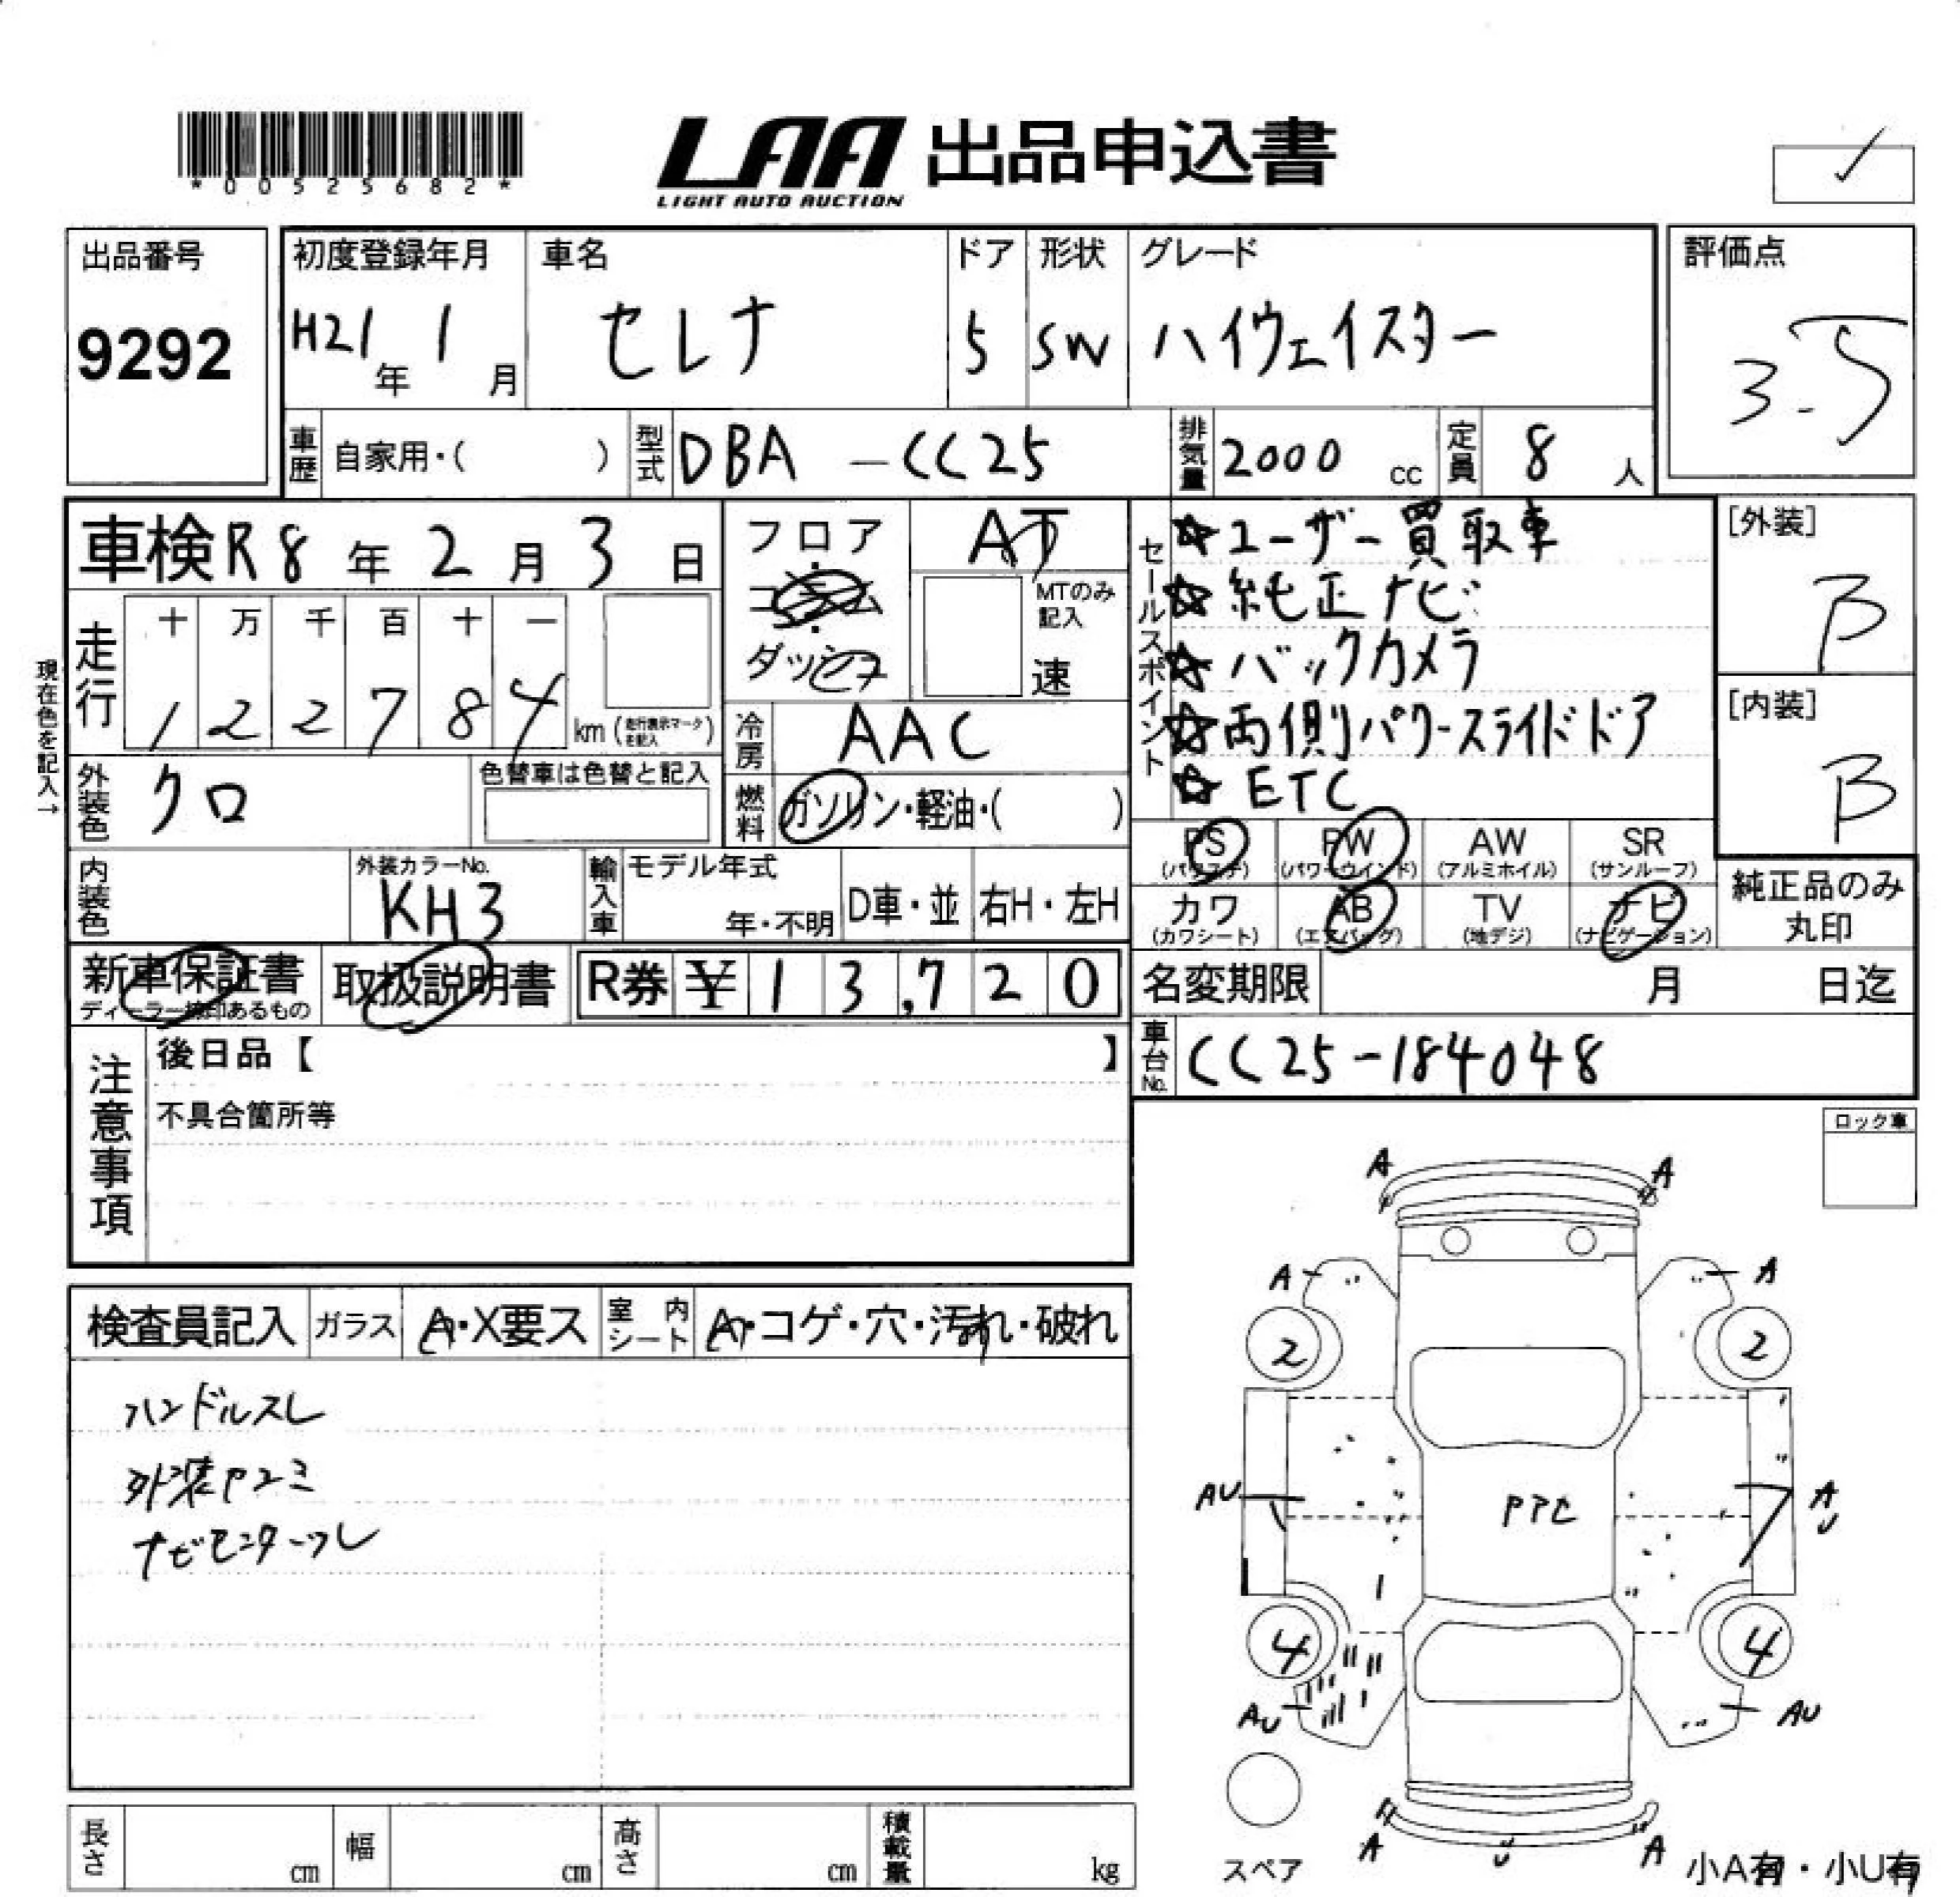 *00525682*
LAA 出品申込書
LIGHT AUTO AUCTION
出品番号
9292
初度登録年月
H21年 1月
車名
セレナ
ドア
5
形状
SW
グレード
ハイウェイスター
評価点
3.5
車歴 自家用・( )
型式 DBA-CC25
排気量 2000 cc
定員 8 人
車検 R8年 2月 3日
フロア・コラム・ダッシュ
AT
MTのみ記入
速
セールスポイント
☆ユーザー買取車
☆純正ナビ
☆バックカメラ
☆両側パワースライドドア
☆ETC
[外装]
B
[内装]
B
現在色を記入→
走行
十 万 千 百 十 一
1 2 2 7 8 4 km (走行表示マークを記入)
冷房 AAC
外装色 クロ
色替車は色替と記入
燃料 ガソリン・軽油・( )
PS (パワステ)
PW (パワーウインド)
AW (アルミホイル)
SR (サンルーフ)
カワ (カワシート)
AB (エアバッグ)
TV (地デジ)
ナビ (ナビゲーション)
純正品のみ丸印
内装色
外装カラーNo.
KH3
輸入車
モデル年式
年・不明
D車・並
右H・左H
新車保証書
ディーラー捺印あるもの
取扱説明書
R券 ¥13,720
名変期限 月 日迄
車台No. CC25-184048
注意事項
後日品【 】
不具合箇所等
ロック車
検査員記入
ガラス A・X要ス
室内シート A・コゲ・穴・汚れ・破れ
ハンドルスレ
外装ヤユミ
ナビモニターツレ
A A
A A
2 2
AU
AU
4 4
AU AU
A U A
スペア
小A有・小U有
長さ cm
幅 cm
高さ cm
積載量 kg